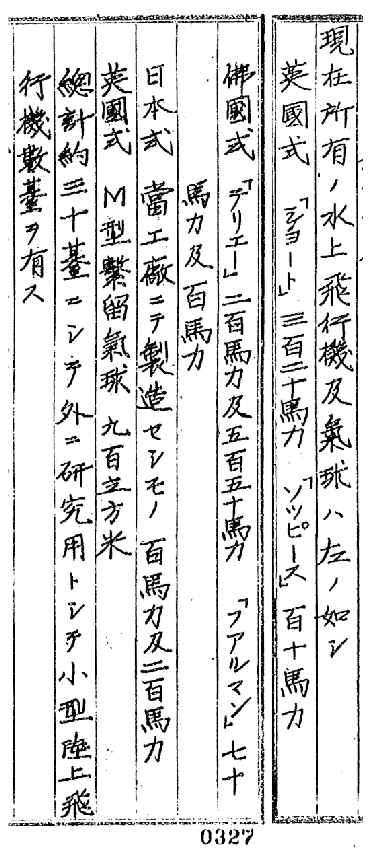 現在所有ノ水上飛行機及氣球ハ左ノ如シ
英國式 「ショート」三百二十馬力 「ソッピース」百十馬力
佛國式 「テリエー」二百馬力及五百五十馬力 「フアルマン」七十
馬力及百馬力
日本式 當工廠ニテ製造セシモノ 百馬力及二百馬力
英國式 M型繫留氣球 九百立方米
總計約三十臺ニシテ外ニ研究用トシテ小型陸上飛
行機數臺ヲ有ス
0327